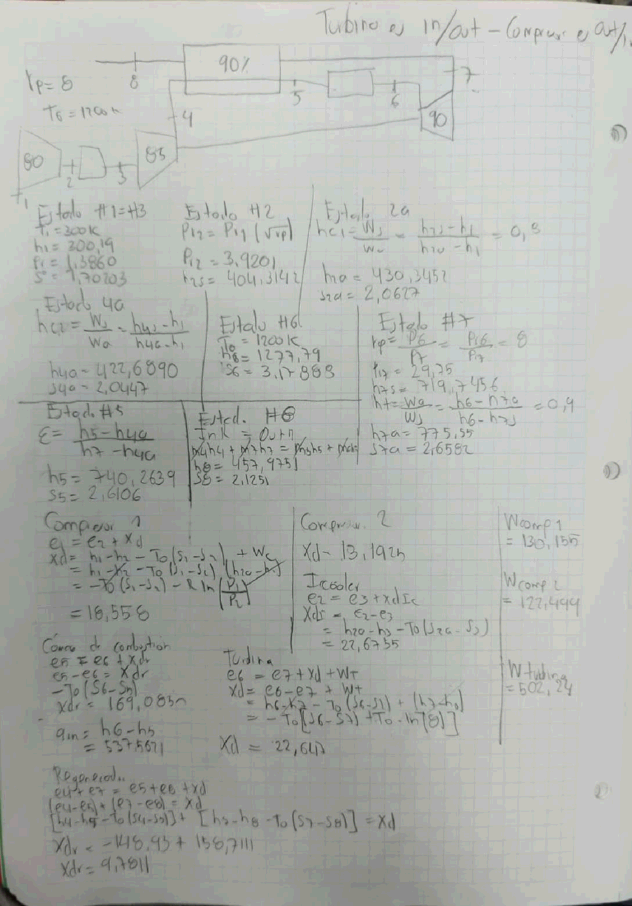 Turbina es in/out - Compresor es out/in
rp = 8
T6 = 1200k
8
90%
7
5
6
90
4
80
2
3
83
1
Estado #1=#3
T1 = 300k
h1 = 300,19
P1 = 1,3860
S = 1,70203
Estado #2
Pr2 = Pr1 (√rp)
Pr2 = 3,9201
h2s = 404,3142
Estado 2a
hc1 = Ws/Wa = h2s-h1/h2a-h1 = 0,8
h2a = 430,3452
s2a = 2,0627
Estado 4a
hc2 = Ws/Wa = h4s-h1/h4a-h1
h4a = 422,6890
s4a = 2,0447
Estado #6
T6 = 1200k
h6 = 1277,79
S6 = 3,17888
Estado #7
rp = P6/P7 = Pr6/Pr7 = 8
Pr7 = 29,75
h7s = 719,7456
ht = Wa/Ws = h6-h7a/h6-h7s = 0,9
h7a = 775,55
s7a = 2,6582
Estado #5
ε = h5-h4a/h7-h4a
h5 = 740,2639
s5 = 2,6106
Estad. #8
h8 = 457,9751
s8 = 2,1251
Compresor 1
e1 = e2 + xd
xd = h1-h2 - T0(s1-s2) + Wc
= h1-h2 - T0(s1-s2) (h2a-h1)
= -T0(s1-s2) - R ln(P1/P2)
= 18,558
Compresor 2
xd = 13,192
Icooler
e2 = e3 + xdIc
xds = e2-e3
= h2a-h3 - T0(s2a-s3)
= 22,6735
Wcomp 1
= 130,155
Wcomp 2
= 122,499
Wturbina
= 502,24
e5 = e6 + xdr
e5-e6 = xdr
-T0(s6-s5)
xdr = 169,085
qin = h6-h5
= 537,5261
Turbina
e6 = e7 + xd + WT
xd = e6-e7 + WT
= h6-h7 - T0(s6-s7) + (h7-h6)
= -T0[(s6-s7) + T0·ln(8)]
Xd = 22,64
Regenerador
e4 + e7 = e5 + e8 + xd
(e4-e5) + (e7-e8) = xd
[h4-h5 - T0(s4-s5)] + [h7-h8 - T0(s7-s8)] = xd
xdr = -148,93 + 158,7111
xdr = 9,7811